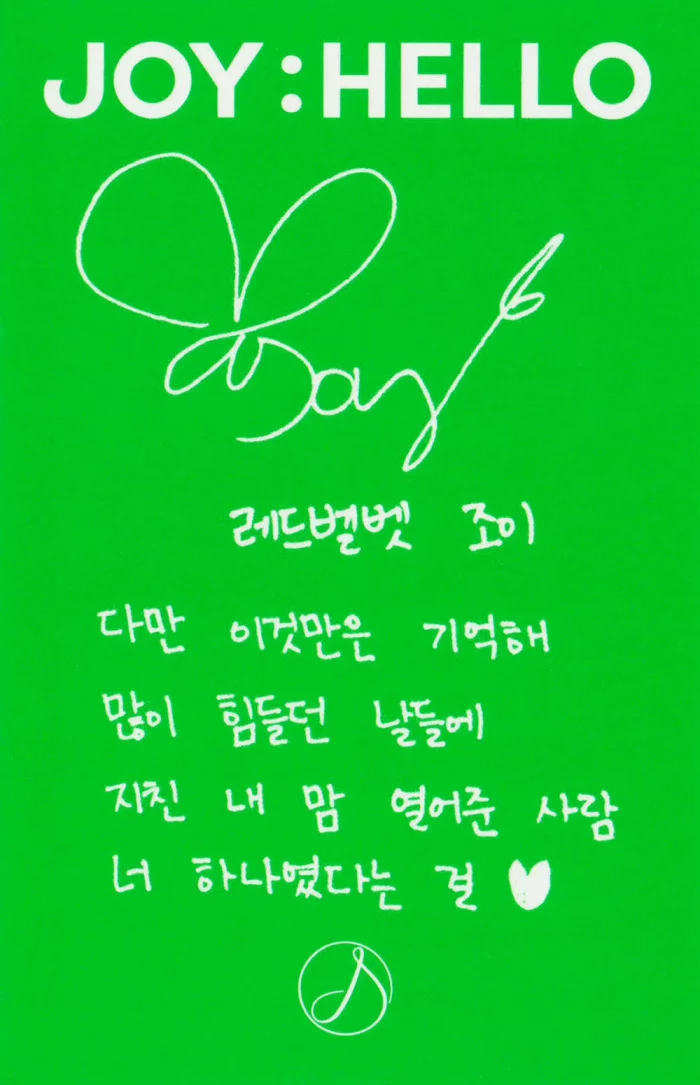 JOY:HELLO
Joy
레드벨벳 조이
다만 이것만은 기억해
많이 힘들던 날들에
지친 내 맘 열어준 사람
너 하나였다는 걸